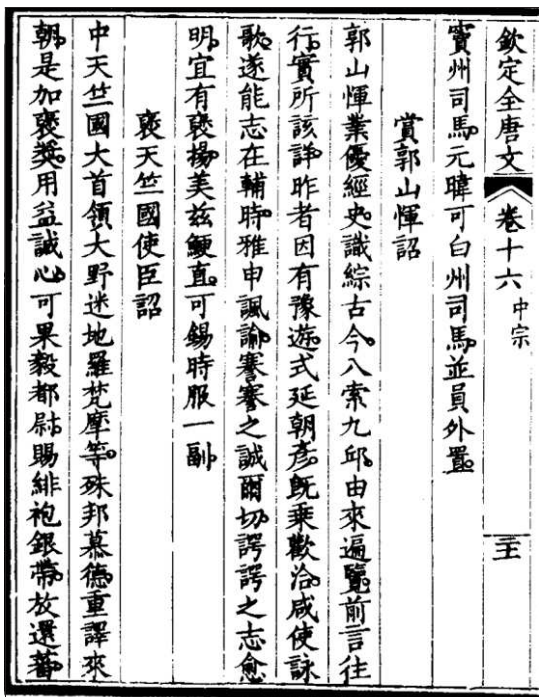 欽定全唐文 卷十六 中宗
竇州司馬。元暐可白州司馬。並員外置。
賞郭山惲詔
郭山惲業優經史。識綜古今。八索九邱。由來遍覽。前言往
行。實所該詳。昨者因有豫遊。式延朝彥。旣乘歡洽。咸使詠
歌。遂能志在輔時。雅申諷諭。謇謇之誠爾切。諤諤之志愈
明。宜有襃揚。美茲鯁直。可錫時服一副。
襃天竺國使臣詔
中天竺國大首領大野迷地羅梵摩等。殊邦慕德。重譯來
朝。是加襃奬。用益誠心。可果毅都尉。賜緋袍銀帶。放還蕃。